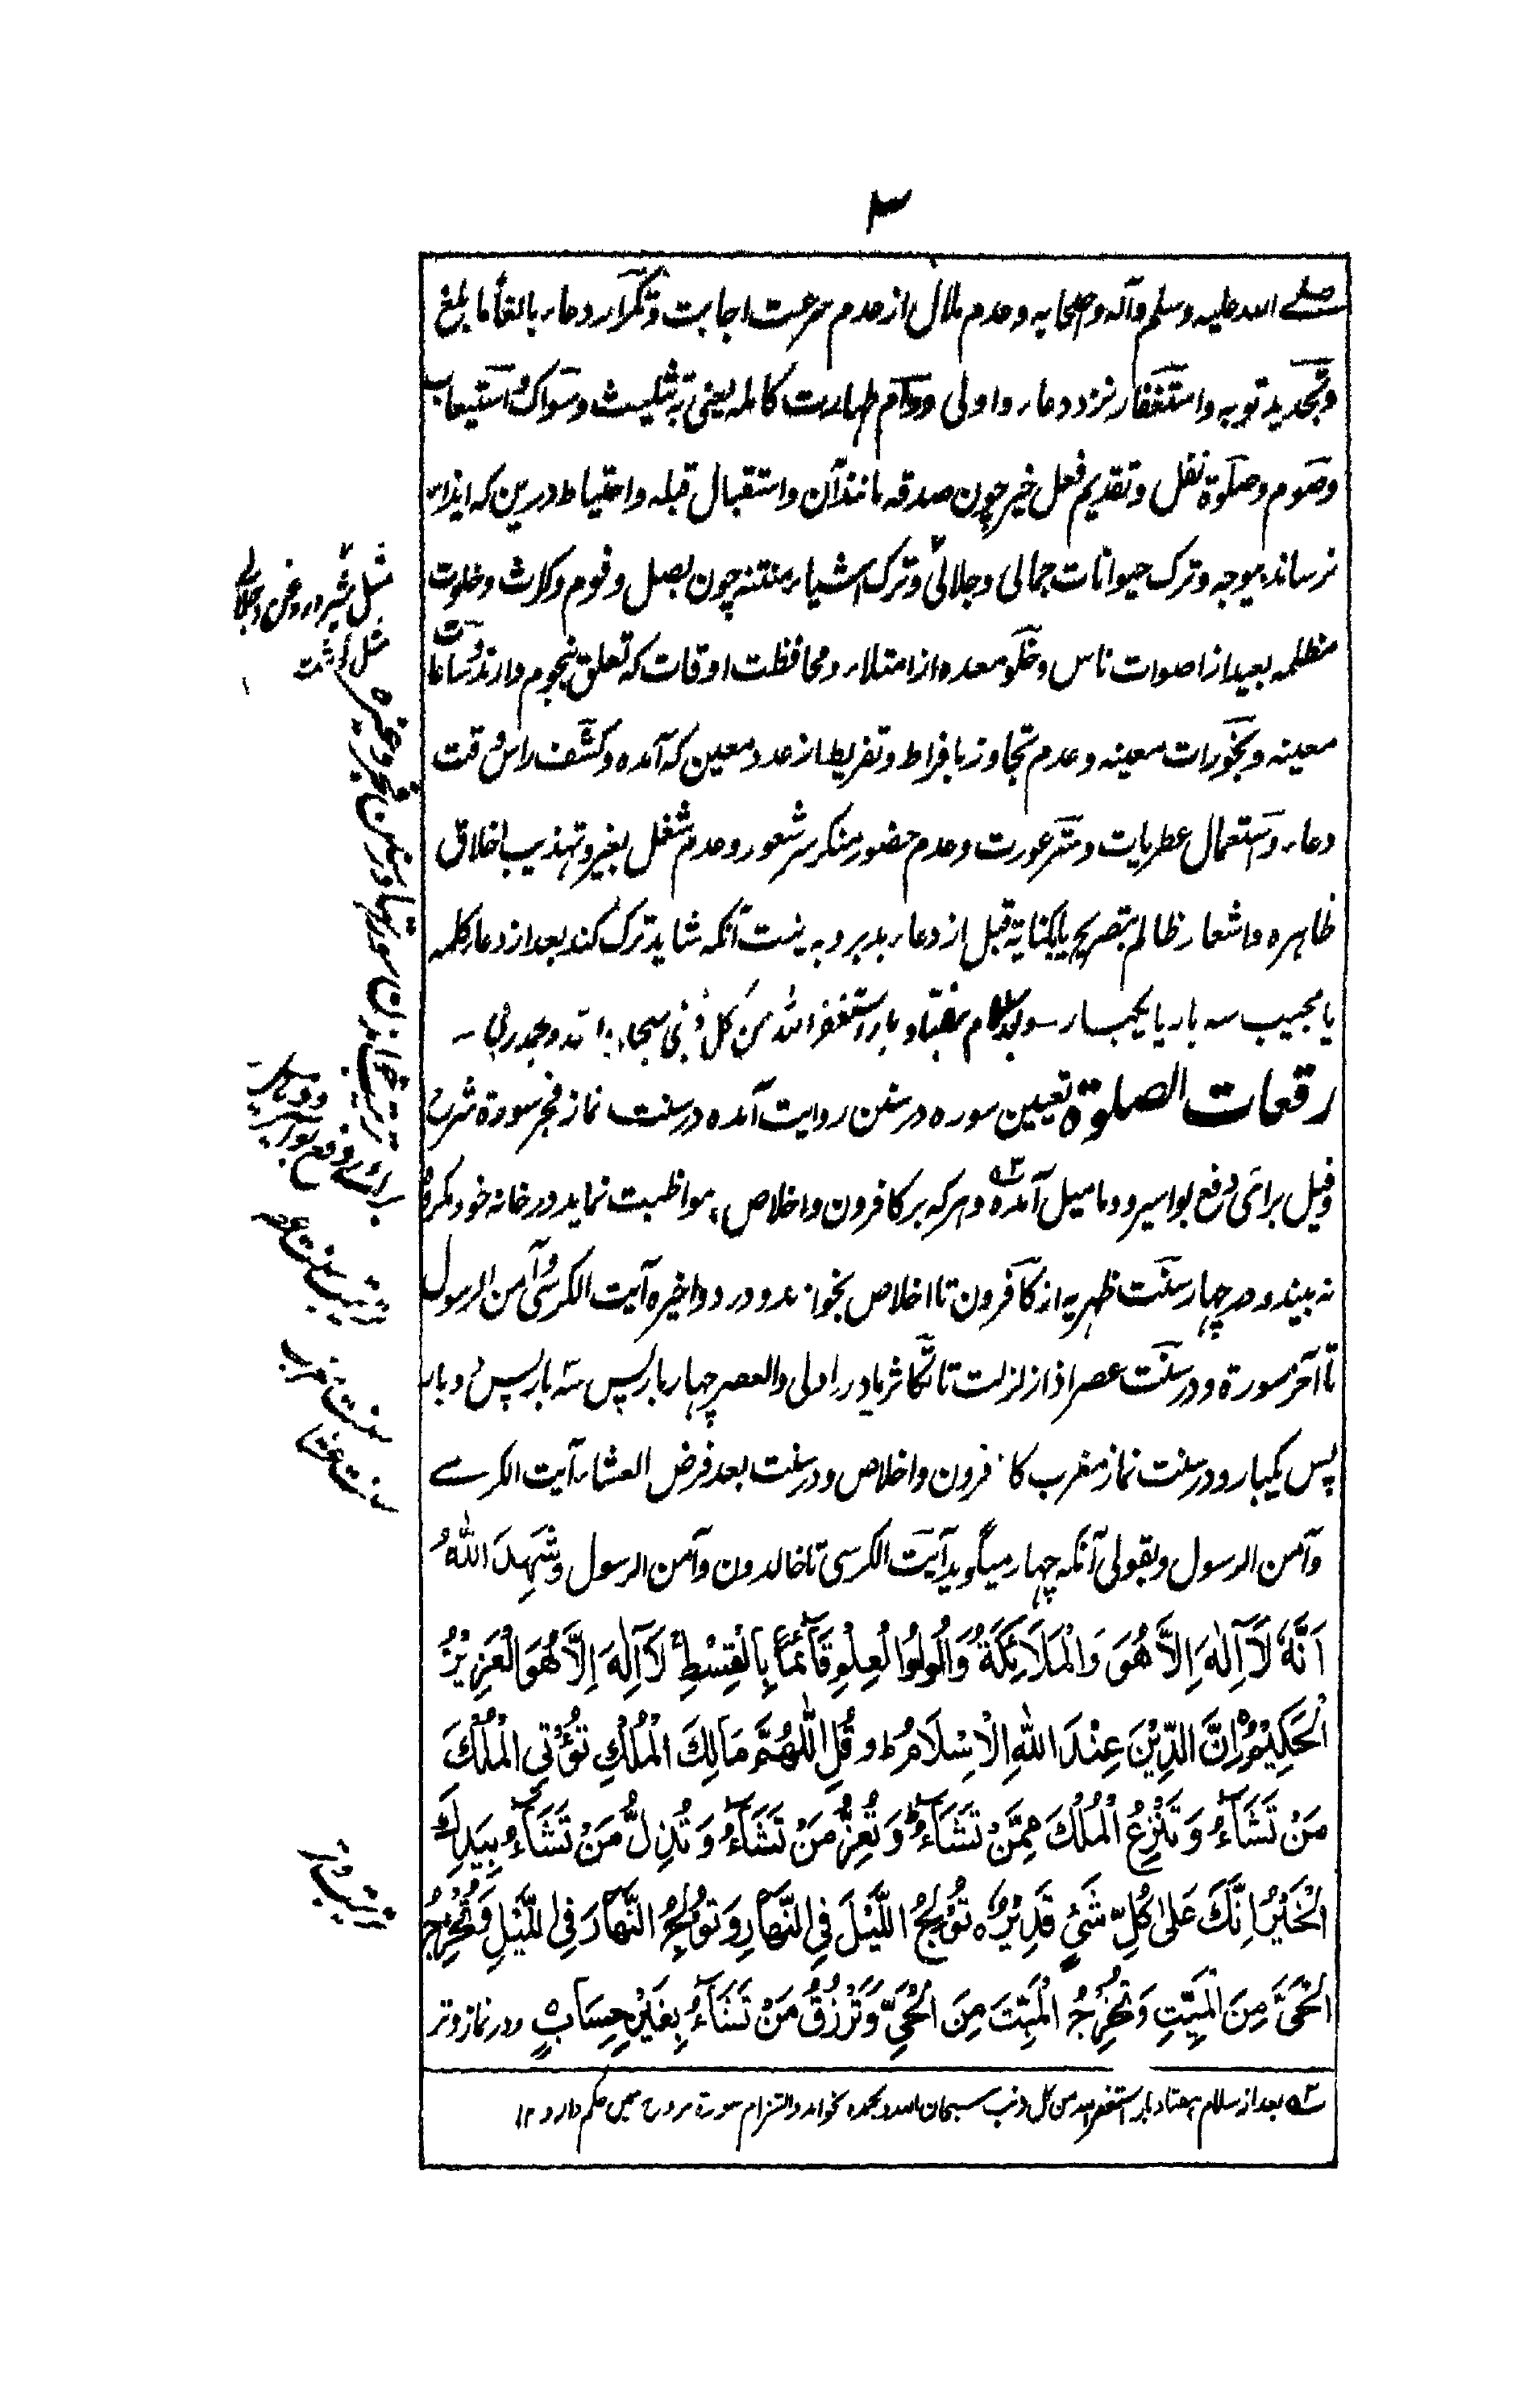 ۳
صلے اللہ علیہ وسلم وآلہ واصحابہ وعدم ملال از عدم سرعت اجابت وتکرار دعاء بالغاً ما بلغ
وتجدید توبہ واستغفار نزد دعاء واولی ودوام طہارت کاملہ یعنی بہ تثلیث ومسواک واستیعاب
وصوم وصلوٰة نفل وتقدیم فعل خیر چون صدقہ مانند آن واستقبال قبلہ واحتیاط درین کہ ایذاء
نرساند بموجہ وترک حیوانات جمالی وجلالی وترک اشیاء منتنہ چون بصل وفوم وکراث وخلوت
مظلمہ بعید از اصوات ناس وخلو معدہ از امتلاء ومحافظت اوقات کہ تعلق بنجوم دارند وساعات
معینہ وبخورات معینہ وعدم تجاوز بافراط وتفریط از عدد معین کہ آمدہ وکشف راس وقت
دعاء واستعمال عطریات وستر عورت وعدم حضور منکر سر شعور وعدم شغل بغیر وتہذیب اخلاق
ظاہرہ واشعار ظالم بتصریح یا بکنایة قبل از دعاء بد برو بہ نیت آنکہ شاید ترک کند بعد از دعاء کلمہ
یا مجیب سہ بار یا یکبار
رقعات الصلوة تعیین سورہ در سنن روایت آمدہ در سنت نماز فجر سورة شرح
وفیل برائی دفع بواسیر ودمامیل آمدہ وہر کہ بر کافرون واخلاص مواظبت نماید در خانہ خود مکروہ
نہ بیند ودر چہار سنت ظہریہ از کافرون تا اخلاص بخواند ودر دو اخیرہ آیت الکرسی وآمن الرسول
تا آخر سورة ودر سنت عصر اذا زلزلت تا تکاثر یا در اولی والعصر چہار بار پس سہ بار پس دو بار
پس یکبار ودر سنت نماز مغرب کافرون واخلاص ودر سنت بعد فرض العشاء آیت الکرسے
وآمن الرسول وبقولی آنکہ چہار میگوید آیت الکرسی تا خالدون وآمن الرسول وشَہِدَ اللّٰہُ
اَنَّهٗ لَآ اِلٰهَ اِلَّا هُوَ وَالْمَلَائِكَةُ وَاُولُوا الْعِلْمِ قَآئِمًا بِالْقِسْطِ لَآ اِلٰهَ اِلَّا هُوَ الْعَزِيْزُ
الْحَكِيْمُ اِنَّ الدِّيْنَ عِنْدَ اللهِ الْاِسْلَامُ ط و قُلِ اللّٰهُمَّ مَالِكَ الْمُلْكِ تُؤْتِي الْمُلْكَ
مَنْ تَشَآءُ وَتَنْزِعُ الْمُلْكَ مِمَّنْ تَشَآءُ وَتُعِزُّ مَنْ تَشَآءُ وَتُذِلُّ مَنْ تَشَآءُ بِيَدِكَ
الْخَيْرُ اِنَّكَ عَلىٰ كُلِّ شَيْءٍ قَدِيْرٌ ه تُوْلِجُ اللَّيْلَ فِي النَّهَارِ وَتُوْلِجُ النَّهَارَ فِي اللَّيْلِ وَتُخْرِجُ
الْحَيَّ مِنَ الْمَيِّتِ وَتُخْرِجُ الْمَيِّتَ مِنَ الْحَيِّ وَتَرْزُقُ مَنْ تَشَآءُ بِغَيْرِ حِسَابٍ ودر نماز وتر
بعد از سلام ہفتاد بار استغفر اللہ من کل ذنب سبحان اللہ وبحمدہ بخواند والتزام سورة ۱۲
مثل شیر وروغن وجلالی
مثل گوشت
ترتیب سنت عصر
سنت مغرب
سنت عشاء
ترتیب وتر